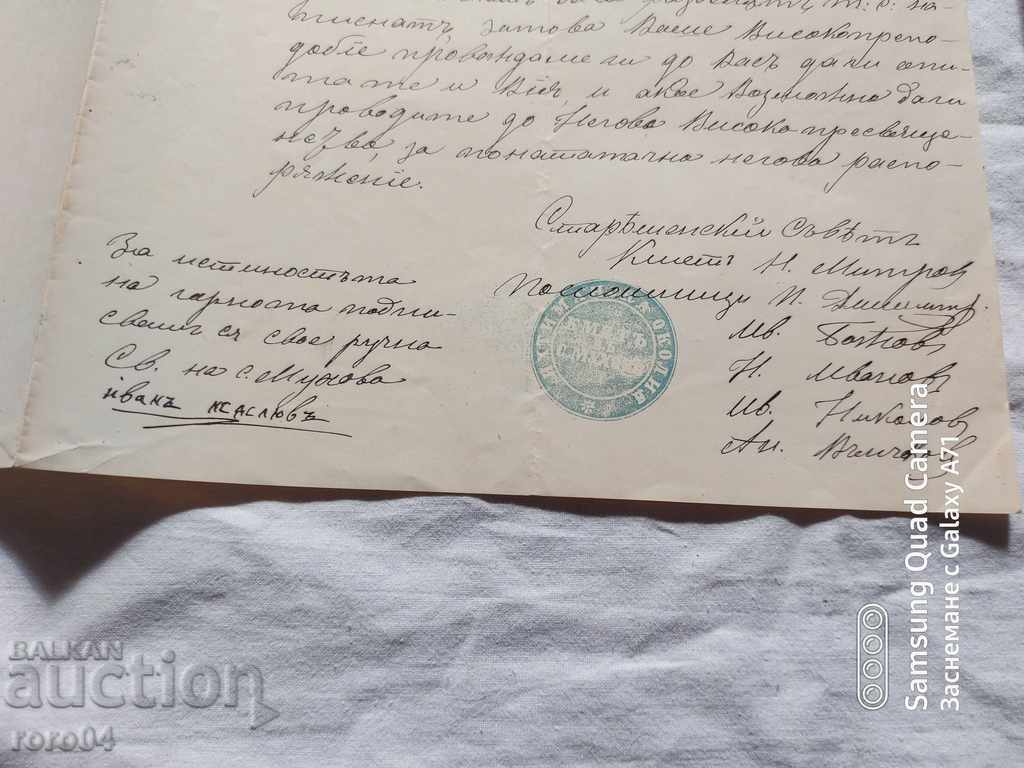 т. е. на-
писнатъ, затова Ваше Високопрепо-
добие провождаме ги до Васъ да ги опи-
тате и Вие, и ако е Возможно да ги
проводите до Негово Високопресвяще-
нство, за понататачно негово распо-
ряжение.
Старѣшенский съвѣтъ
Кметъ Н. Митров
Помошници П. Димитр.
Ив. Божков
Н. Иванов
Ив. Николов
Ан. Величков
За истиностьта
на горнота подпи-
сваш съ свое ручно
Св. на с. Мухова
Иванъ Маслювъ
ОКОЛИЯ
BALKAN
auction
roro04
Samsung Quad Camera
Заснемане с Galaxy A71